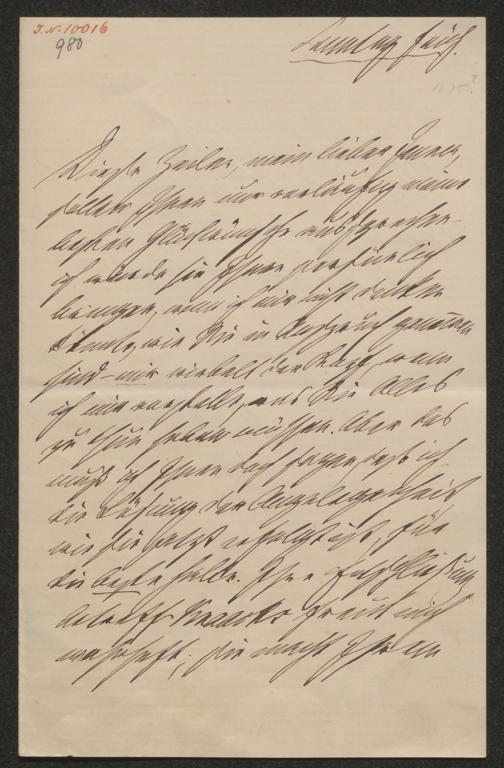 I.N. 10016
980
Sonntag früh.
1875?
Diese Zeilen, mein lieber
sollen Ihnen nur vorläufig meine
besten Glückwünsche aussprechen –
ich würde sie Ihnen persönlich
bringen, wenn ich mir nicht denken
könnte, wie Sie in Anspruch genommen
sind – mir wirbelt der Kopf, wenn
ich mir vorstelle, was Sie Alles
zu thun haben müssen. Aber das
muß ich Ihnen doch sagen, daß ich
die Lösung der Angelegenheit
wie sie jetzt erfolgt ist, für
die beste halte. Ihre Entschließung
betreffs freut mich
wahrhaft; sie macht Ihnen